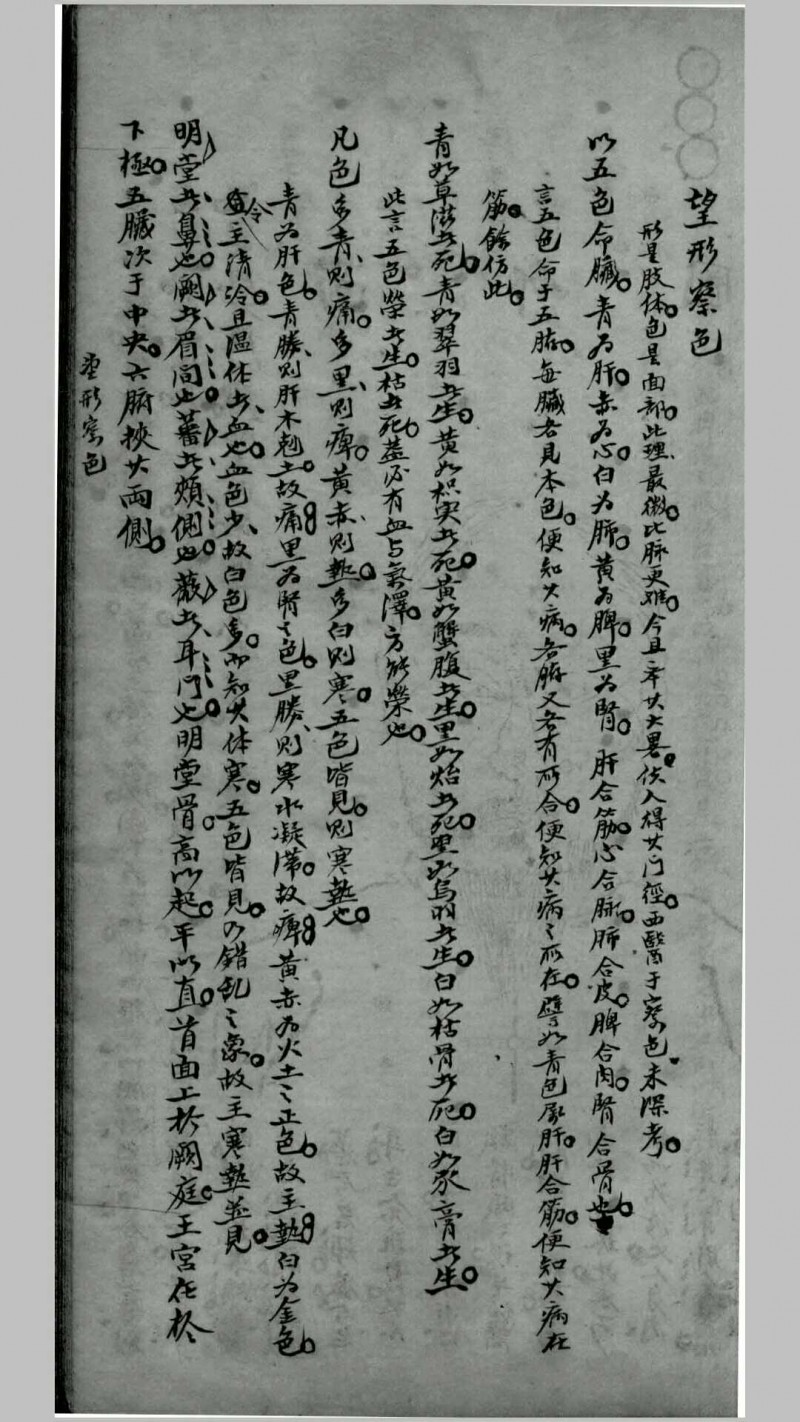 望形察色
形是肢体。色是面部。此理最微。比脉更难。今且举其大畧。使人得其门徑。西醫于察色。未深考。
以五色命臟。青为肝。赤为心。白为肺。黄为脾。黑为腎。肝合筋。心合脉。肺合皮。脾合肉。腎合骨也。
言五色命于五脏。每臟若見本色。便知其病。各脏又各有所合。便知其病之所在。譬如青色属肝。肝合筋。便知其病在
筋。餘仿此。
青如草滋者死。青如翠羽者生。黄如枳实者死。黄如蟹腹者生。黑如炲者死。黑如烏羽者生。白如枯骨者死。白如豕膏者生。
此言五色榮者生。枯者死。蓋必有血与氣澤。方能榮也。
凡色多青、则痛。多黑、则痺。黄赤则熱。多白则寒。五色皆見。则寒熱也。
青为肝色。青勝、则肝木剋土。故痛。黑为腎之色。黑勝、则寒水凝滞。故痺。黄赤为火土之正色。故主熱。白为金色。
金主清冷。且温体者、血也。血色少、故白色多。而知其体寒。五色皆見。乃錯乱之象。故主寒熱並見。
明堂者、鼻也。闕者、眉间也。蕃者、頰側也。蔽者、耳门也。明堂骨。高以起。平以直。首面上於闕庭。王宮在於
下極。五臟次于中央。六腑挾其兩側。
望形察色